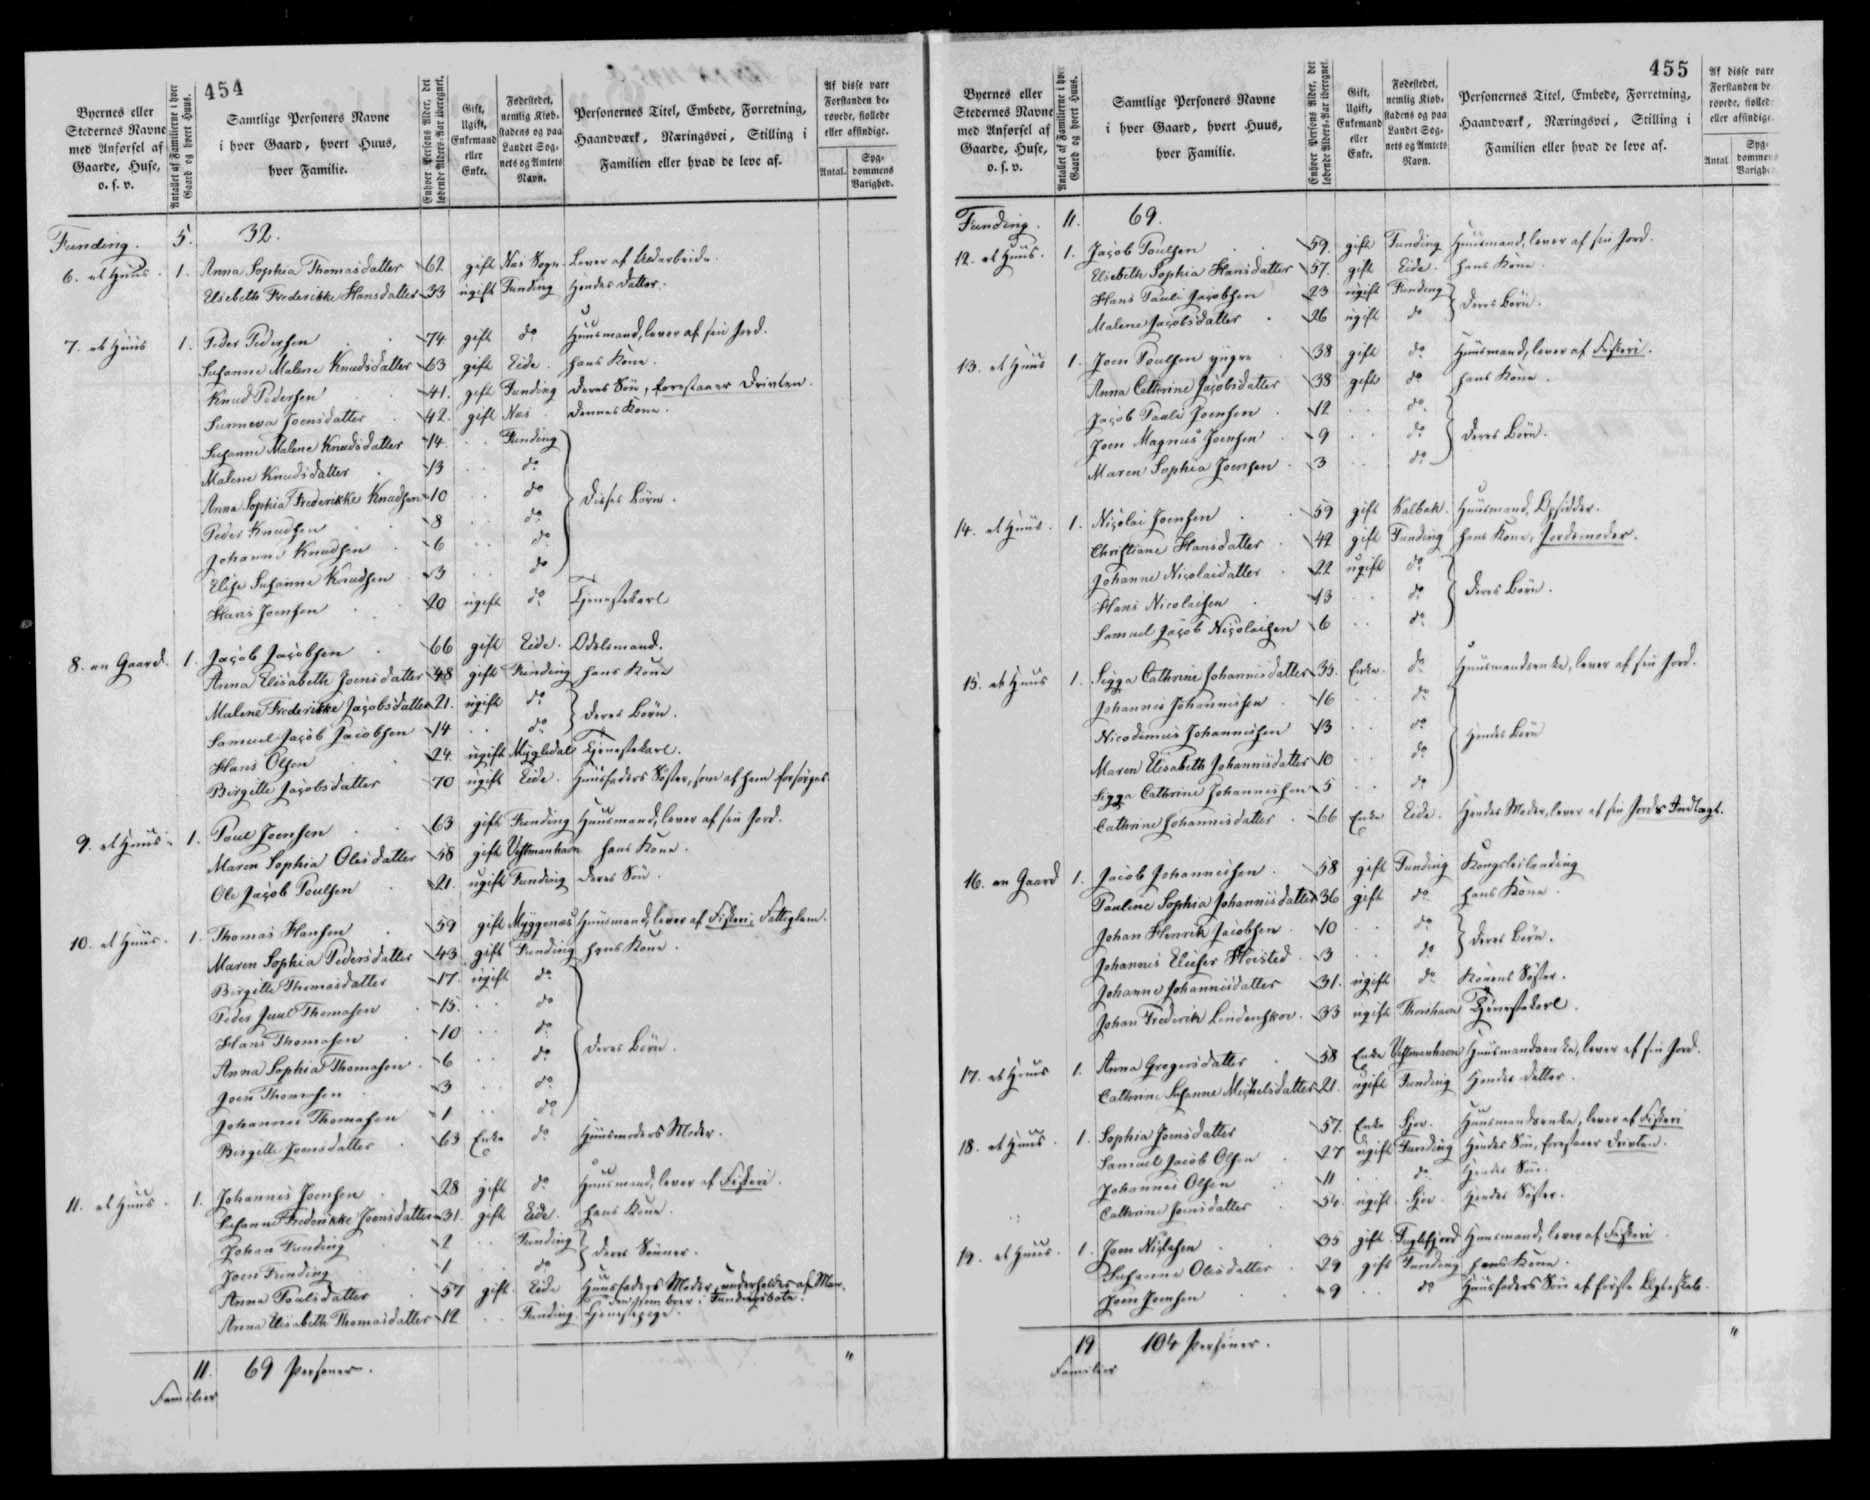 454
Byernes eller Stedernes Navne med Anførsel af Gaarde, Huse, o. s. v.
Antallet af Familierne i hver Gaard og hvert Huus.
Samtlige Personers Navne i hver Gaard, hvert Huus, hver Familie.
Enhver Persons Alder, det løbende Alders-Aar iberegnet.
Gift, Ugift, Enkemand eller Enke.
Fødestedet, nemlig Kiøbstadens og paa Landet Sognets og Amtets Navn.
Personernes Titel, Embede, Forretning, Haandværk, Næringsvei, Stilling i Familien eller hvad de leve af.
Af disse vare Forstanden berøvede, fiollede eller afsindige.
Antal.
Sygdommens Varighed.
Funding. 5. 32.
6. et Huus. 1. Anna Sophia Thomasdatter 62 gift Næs Sogn Lever af Uldarbeide.
Elsebeth Frederikke Hansdatter 33 ugift Funding Hendes Datter.
7. et Huus 1. Peder Pedersen 74 gift do Huusmand, lever af sin Jord.
Susanne Malene Knudsdatter 63 gift Eide. hans Kone.
Knud Pedersen 41. gift Funding deres Søn, forestaaer Drivten.
Sunneva Joensdatter 42. gift Næs dennes Kone.
Susanne Malene Knudsdatter 14. . . Funding
Malene Knudsdatter 13 . . do
Anna Sophia Frederikke Knudsen 10 . . do disses Børn.
Peder Knudsen 8 . . do
Johanne Knudsen 6 . . do
Elise Susanne Knudsen 3 . . do
Hans Joensen 20 ugift do Tjenestekarl
8. en Gaard. 1. Jacob Jacobsen 66 gift Eide. Odelsmand.
Anna Elisabeth Joensdatter 48 gift Funding hans Kone
Malene Frederikke Jacobsdatter 21. ugift do deres Børn.
Samuel Jacob Jacobsen 14 . . do
Hans Olsen 24. ugift Mygledal Tjenestekarl.
Birgitte Jacobsdatter 70 ugift Eide. Huusfaders Søster, som af ham forsørges
9. et Huus. 1. Poul Joensen 63 gift Funding Huusmand, lever af sin Jord.
Maren Sophia Olesdatter 58 gift Vestmanhavn hans Kone.
Ole Jacob Poulsen 21. ugift Funding deres Søn.
10. et Huus. 1. Thomas Hansen 59 gift Myggenæs Huusmand, lever af Fiskeri, Fattiglem.
Maren Sophia Pedersdatter 43 gift Funding hans Kone.
Birgitte Thomasdatter 17. ugift do
Peder Juul Thomasen 15. . . do
Hans Thomasen 10 . . do
Anna Sophia Thomasen 6 . . do deres Børn.
Joen Thomasen 3 . . do
Johannes Thomasen 1 . . do
Birgitte Joensdatter 63 Enke do Huusmoders Moder.
11. et Huus. 1. Johannes Joensen 28 gift do Huusmand, lever af Fiskeri.
Susanne Frederikke Joensdatter 31. gift Eide. hans Kone.
Johan Funding 2 . . Funding deres Sønner.
Joen Funding 1 . . do
Anna Poulsdatter 57 gift Eide Huusfaders Moder, underholdes af Man-
den som boer i Fundingsbotn.
Anna Elisabeth Thomasdatter 12 . . Funding. Tjenestepige.
11. 69 Personer. "
Familier
455
Byernes eller Stedernes Navne med Anførsel af Gaarde, Huse, o. s. v.
Antallet af Familierne i hver Gaard og hvert Huus.
Samtlige Personers Navne i hver Gaard, hvert Huus, hver Familie.
Enhver Persons Alder, det løbende Alders-Aar iberegnet.
Gift, Ugift, Enkemand eller Enke.
Fødestedet, nemlig Kiøbstadens og paa Landet Sognets og Amtets Navn.
Personernes Titel, Embede, Forretning, Haandværk, Næringsvei, Stilling i Familien eller hvad de leve af.
Af disse vare Forstanden berøvede, fiollede eller afsindige.
Antal
Sygdommens Varighed
Funding. 11. 69.
12. et Huus. 1. Jacob Poulsen 59. gift Funding Huusmand, lever af sin Jord.
Elsebeth Sophia Hansdatter 57. gift Eide. hans Kone.
Hans Pauli Jacobsen 23 ugift Funding deres Børn.
Malene Jacobsdatter 26 ugift do
13. et Huus 1. Joen Poulsen yngre 38 gift do Huusmand, lever af Fiskeri.
Anna Cathrine Jacobsdatter 38 gift do hans Kone.
Jacob Pauli Joensen 12 . . do.
Joen Magnus Joensen 9 . . do deres Børn.
Maren Sophia Joensen 3 . . do
14. et Huus. 1. Nicolai Joensen 59 gift Kalbak. Huusmand, Opsidder.
Christiane Hansdatter 42 gift Funding hans Kone, Jordemoder.
Johanne Nicolaidatter 22 ugift do
Hans Nicolaisen 13 . . do deres Børn.
Samuel Jacob Nicolaisen 6 . . do
15. et Huus 1. Sigga Cathrine Johannisdatter 35. Enke. do Huusmandsenke, lever af sin Jord.
Johannes Johannesen 16 . . do
Nicodemus Johannesen 13 . . do hendes Børn
Maren Elisabeth Johannisdatter 10 . . do
Sigga Cathrine Johannesen 5 . . do
Cathrine Johannisdatter 66 Enke Eide. Hendes Moder, lever af sin Jords Indtægt.
16. en Gaard 1. Jacob Johannesen 58 gift Funding Kongsleilænding
Pauline Sophia Johannisdatter 36 gift do hans Kone.
Johan Henrik Jacobsen 10 . . do deres Børn.
Johannes Elieser 3 . . do
Johanne Johannisdatter 31. ugift do Konens Søster.
Johan Frederik Lindenskov 33 ugift Thorshavn Tjenestekarl.
17. et Huus 1. Anna Gregersdatter 58 Enke Vestmanhavn Huusmandsenke, lever af sin Jord.
Cathrine Susanne Michelsdatter 21. ugift Funding Hendes Datter.
18. et Huus. 1. Sophia Joensdatter 57. Enke Gjov. Huusmandsenke, lever af Fiskeri
Samuel Jacob Olsen 27 ugift Funding Hendes Søn, forestaaer Drivten.
Johannes Olsen 11 . . do Hendes Søn.
Cathrine Joensdatter 54. ugift Gjov. Hendes Søster.
19. et Huus. 1. Joen Niclasen 35 gift Fuglefjord Huusmand, lever af Fiskeri
Susanne Olesdatter 29 gift Funding hans Kone.
Joen Joensen 9 . . do Huusfaders Søn af første Ægteskab.
19 104 Personer. "
Familier